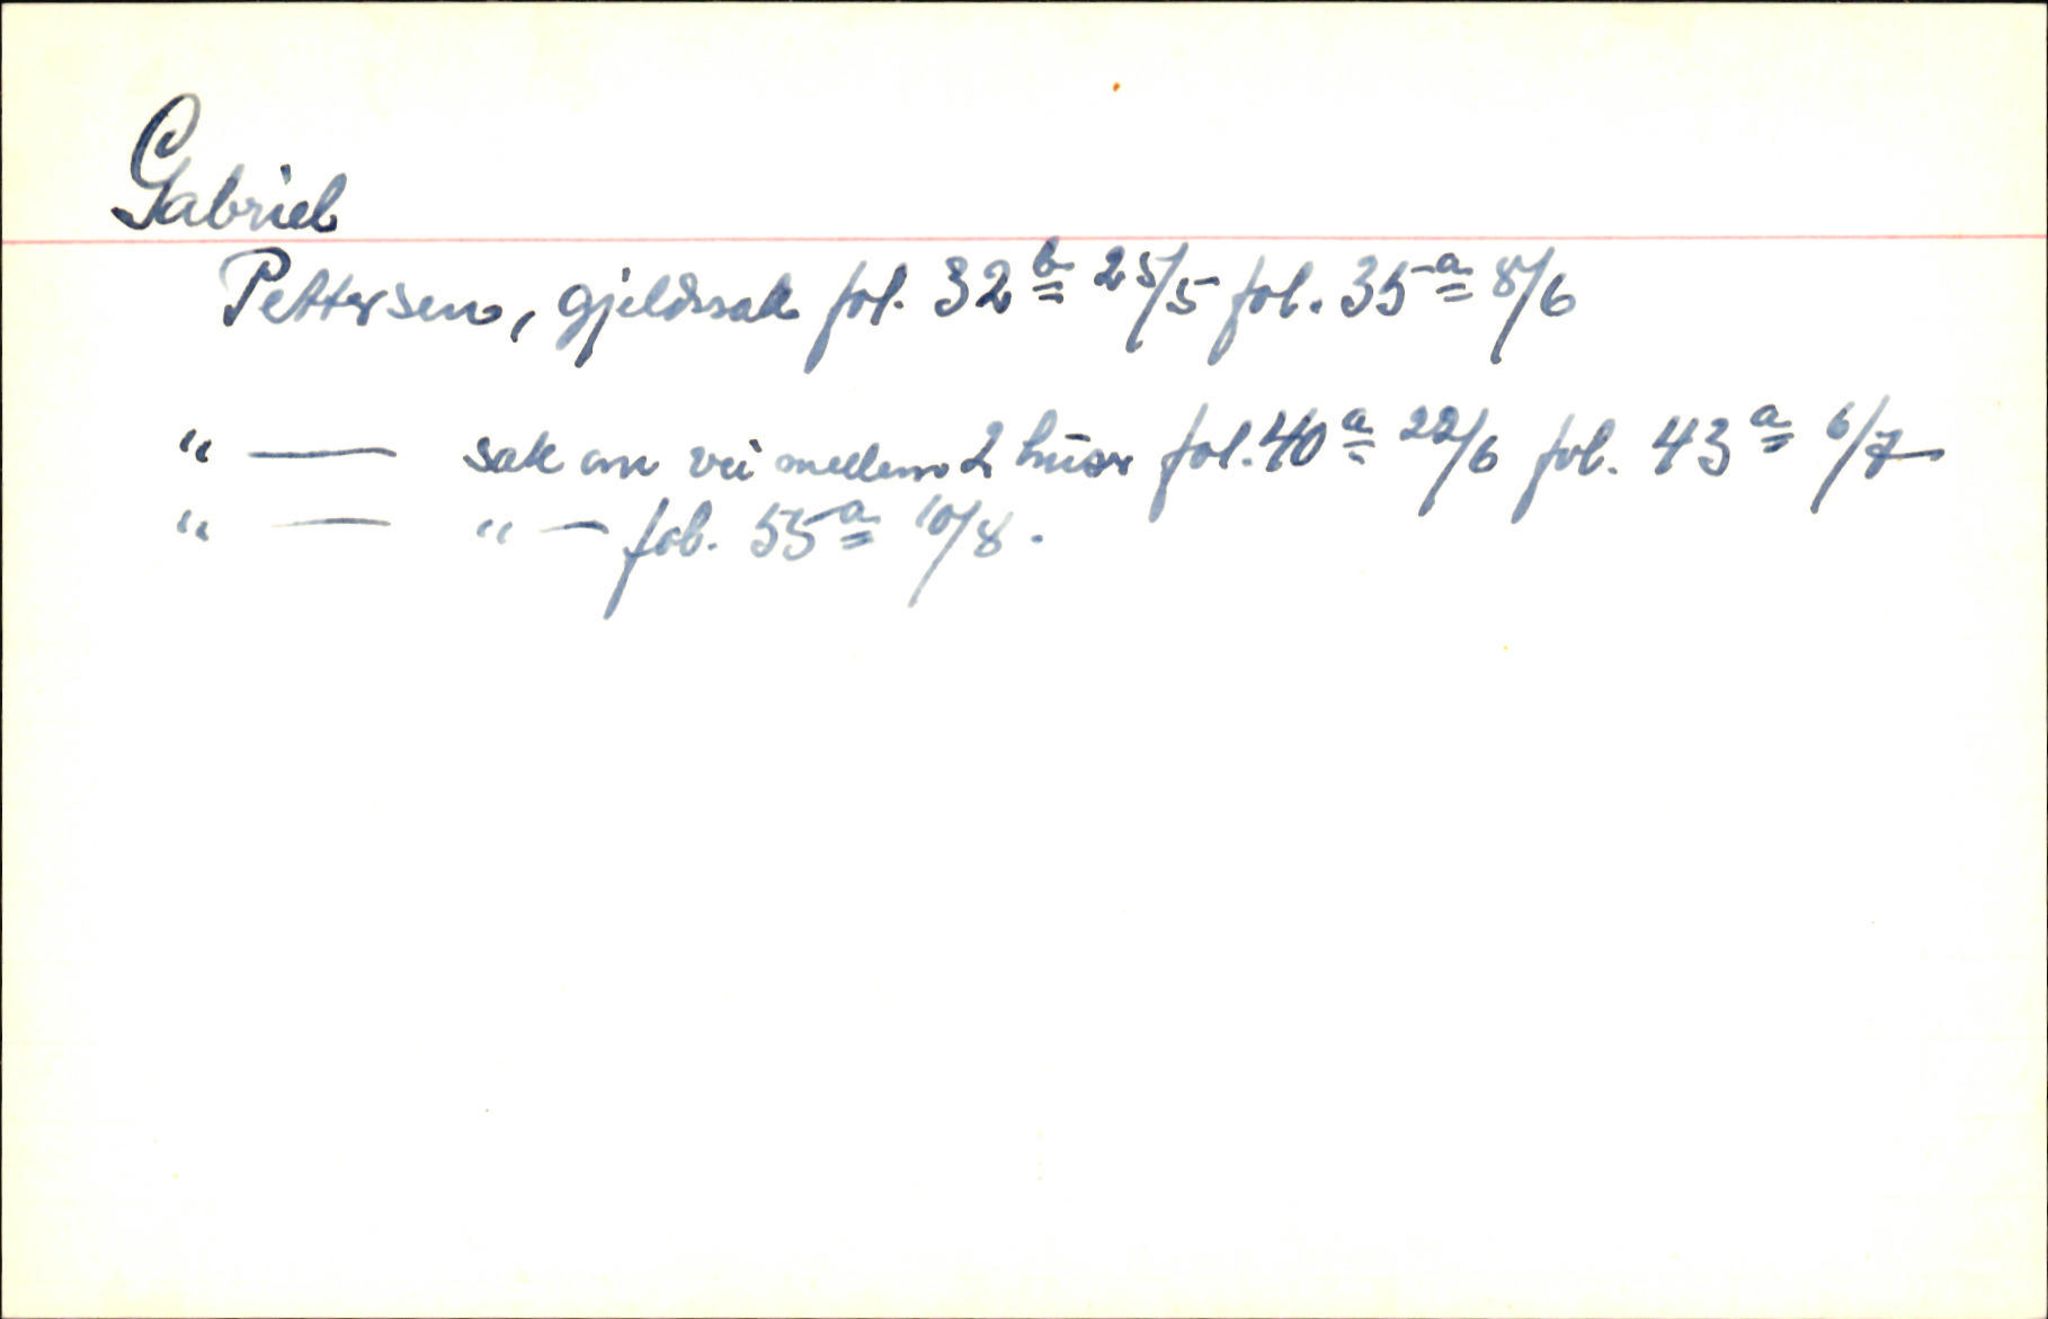 Gabriel
Pettersen, gjeldssak fol. 32b 25/5 fol. 35a 8/6
" — sak om vei mellem 2 huser fol. 40a 22/6 fol. 43a 6/7
" — " — fol. 55a 10/8.